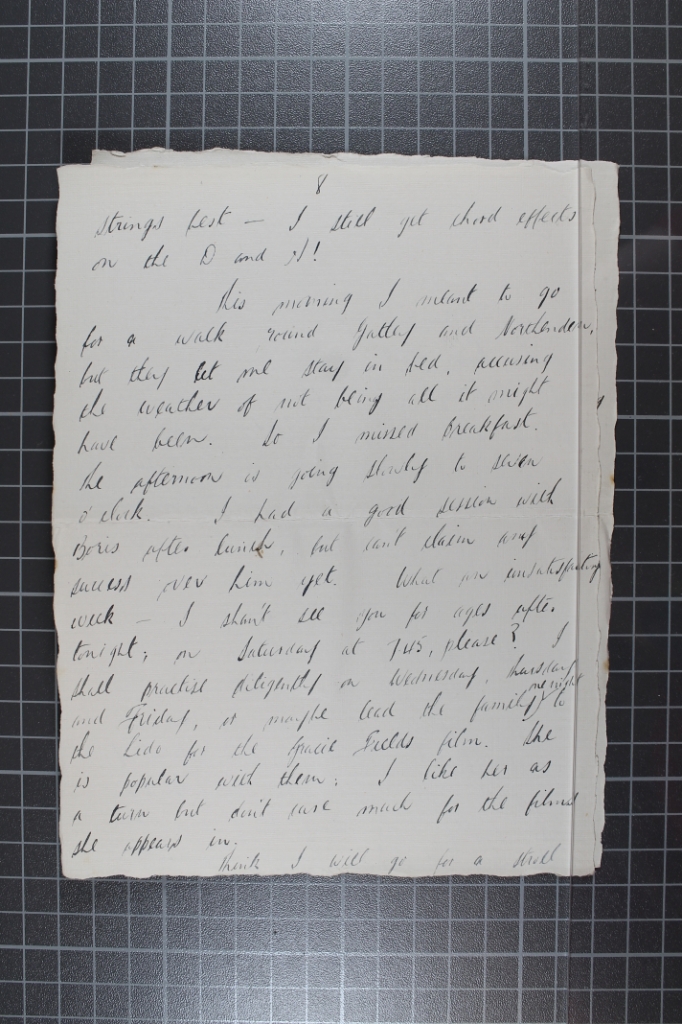 8
strings best — I still get chord effects
on the D and A!
This morning I meant to go
for a walk round Gatley and Northenden,
but they let me stay in bed, accusing
the weather of not being all it might
have been. So I missed breakfast.
The afternoon is going slowly to seven
o'clock. I had a good session with
Boris after lunch, but can't claim any
success over him yet. What an unsatisfactory
week — I shan't see you for ages after
tonight; on Saturday at 7.45, please? I
shall practise diligently on Wednesday, Thursday
and Friday, or maybe lead the family one night to
the Lido for the Gracie Fields film. She
is popular with them; I like her as
a turn but don't care much for the films
she appears in.
Think I will go for a stroll